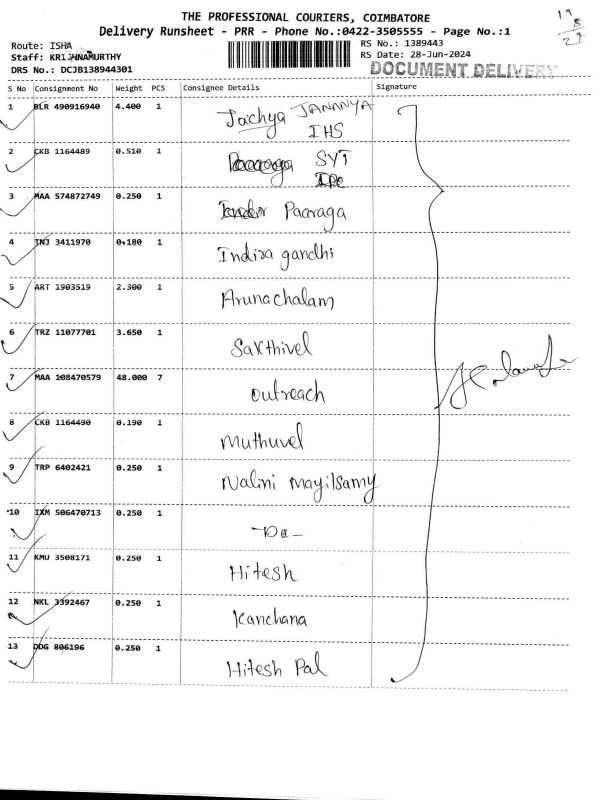 THE PROFESSIONAL COURIERS, COIMBATORE
Delivery Runsheet - PRR - Phone No.:0422-3505555 - Page No.:1
Route: ISHA
Staff: KRISHNAMURTHY
DRS No.: DCJB138944301
RS No.: 1389443
RS Date: 28-Jun-2024
DOCUMENT DELIVERY
19
8
27
S No Consignment No Weight PCS Consignee Details Signature
1 BLR 490916940 4.400 1 JANANYA
IHS
2 CKB 1164489 0.510 1 SYT
3 MAA 574872749 0.250 1 Paaraga
4 TNJ 3411970 0.180 1 Indira gandhi
5 ART 1903519 2.300 1 Arunachalam
6 TRZ 11077701 3.650 1 Sakthivel
7 MAA 108470579 48.000 7 outreach
8 CKB 1164490 0.190 1 Muthuvel
9 TRP 6402421 0.250 1 Nalini Mayilsamy
10 IXM 506470713 0.250 1 -Do-
11 KMU 3508171 0.250 1 Hitesh
12 NKL 3392467 0.250 1 Kanchana
13 DDG 806196 0.250 1 Hitesh Pal